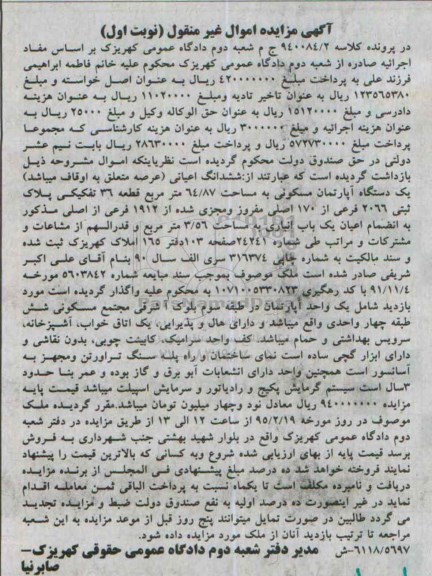 آگهی مزایده اموال غیر منقول (نوبت اول)
در پرونده کلاسه ۹۴۰۰۸۴/۲ ج م شعبه دوم دادگاه عمومی کهریزک بر اساس مفاد
اجرائیه صادره از شعبه دوم دادگاه عمومی کهریزک محکوم علیه خانم فاطمه ابراهیمی
فرزند علی به پرداخت مبلغ ۴۲۰۰۰۰۰۰۰ ریال به عنوان اصل خواسته و مبلغ
۱۲۳۵۶۵۳۸۰ ریال به عنوان تاخیر تادیه ومبلغ ۱۱۰۲۰۰۰۰ ریال به عنوان هزینه
دادرسی و مبلغ ۱۵۱۲۰۰۰۰ ریال به عنوان حق الوکاله وکیل و مبلغ ۲۵۰۰۰ ریال به
عنوان هزینه اجرائیه و مبلغ ۳۰۰۰۰۰۰ ریال به عنوان هزینه کارشناسی که مجموعا
پرداخت مبلغ ۵۷۲۷۳۰۰۰۰ ریال و پرداخت مبلغ ۲۸۶۳۰۰۰۰ ریال بابت نیم عشر
دولتی در حق صندوق دولت محکوم گردیده است نظربایکه اموال مشروحه ذیل
بازداشت گردیده است که عبارتند از:ششدانگ اعیانی (عرصه متعلق به اوقاف میباشد)
یک دستگاه آپارتمان مسکونی به مساحت ۶۴/۸۷ متر مربع قطعه ۳۶ تفکیکی پلاک
ثبتی ۲۰۶۶ فرعی از ۱۷۰ اصلی مفروز ومجزی شده از ۱۹۱۲ فرعی از اصلی مذکور
به انضمام اعیان یک باب انباری به مساحت ۳/۵۶ متر مربع و قدرالسهم از مشاعات و
مشترکات و مراتب طی شماره ۲۴۲۴۱صفحه ۱۰۳دفتر ۱۶۵ املاک کهریزک ثبت شده
و سند مالکیت به شماره چاپی ۳۱۶۳۷۴ سری الف سال ۹۰ بنام آقای علی اکبر
شریفی صادر شده است ملک موصوف بموجب سند مبایعه شماره ۵۶۰۳۸۴۲ مورخه
۹۱/۱۱/۴ با کد رهگیری ۱۰۷۱۰۰۵۳۳۰۸۲۳ به محکوم علیه واگذار گردیده است مورد
بازدید شامل یک واحد آپارتمان در طبقه سوم بلوک ۱ شرقی مجتمع مسکونی شش
طبقه چهار واحدی واقع میباشد و دارای هال و پذیرایی، یک اتاق خواب، آشپزخانه،
سرویس بهداشتی و حمام میباشد. کف واحد سرامیک، کابینت چوبی، بدون نقاشی و
دارای ابزار گچی ساده است نمای ساختمان و راه پله سنگ تراورتن ومجهز به
آسانسور است همچنین واحد دارای انشعابات آبو برق و گاز بوده و عمر بنا حدود
۳سال است سیستم گرمایش پکیج و رادیاتور و سرمایش اسپیلت میباشد قیمت پایه
مزایده ۹۴۰۰۰۰۰۰۰ ریال معادل نود وچهار میلیون تومان میباشد.مقرر گردیده ملک
موصوف در روز مورخه ۹۵/۲/۱۹ از ساعت ۱۲ الی ۱۳ از طریق مزایده در دفتر شعبه
دوم دادگاه عمومی کهریزک واقع در بلوار شهید بهشتی جنب شهرداری به فروش
برسد قیمت پایه از بهای ارزیابی شده شروع وبه کسانی که بالاترین قیمت را پیشنهاد
نمایند فروخته خواهد شد ده درصد مبلغ پیشنهادی فی المجلس از برنده مزایده
دریافت و نامبرده مکلف است تا یکماه نسبت به پرداخت الباقی ثمن معامله اقدام
نماید در غیر اینصورت ده درصد اولیه به نفع صندوق دولت ضبط و مزایده تجدید
می گردد طالبین در صورت تمایل میتوانند پنج روز قبل از موعد مزایده به این شعبه
مراجعه تا ترتیب بازدید آنان از ملک مورد مزایده داده شود.
۶۱۱۸/۵۶۹۷-ش مدیر دفتر شعبه دوم دادگاه عمومی حقوقی کهریزک-
صابرنیا